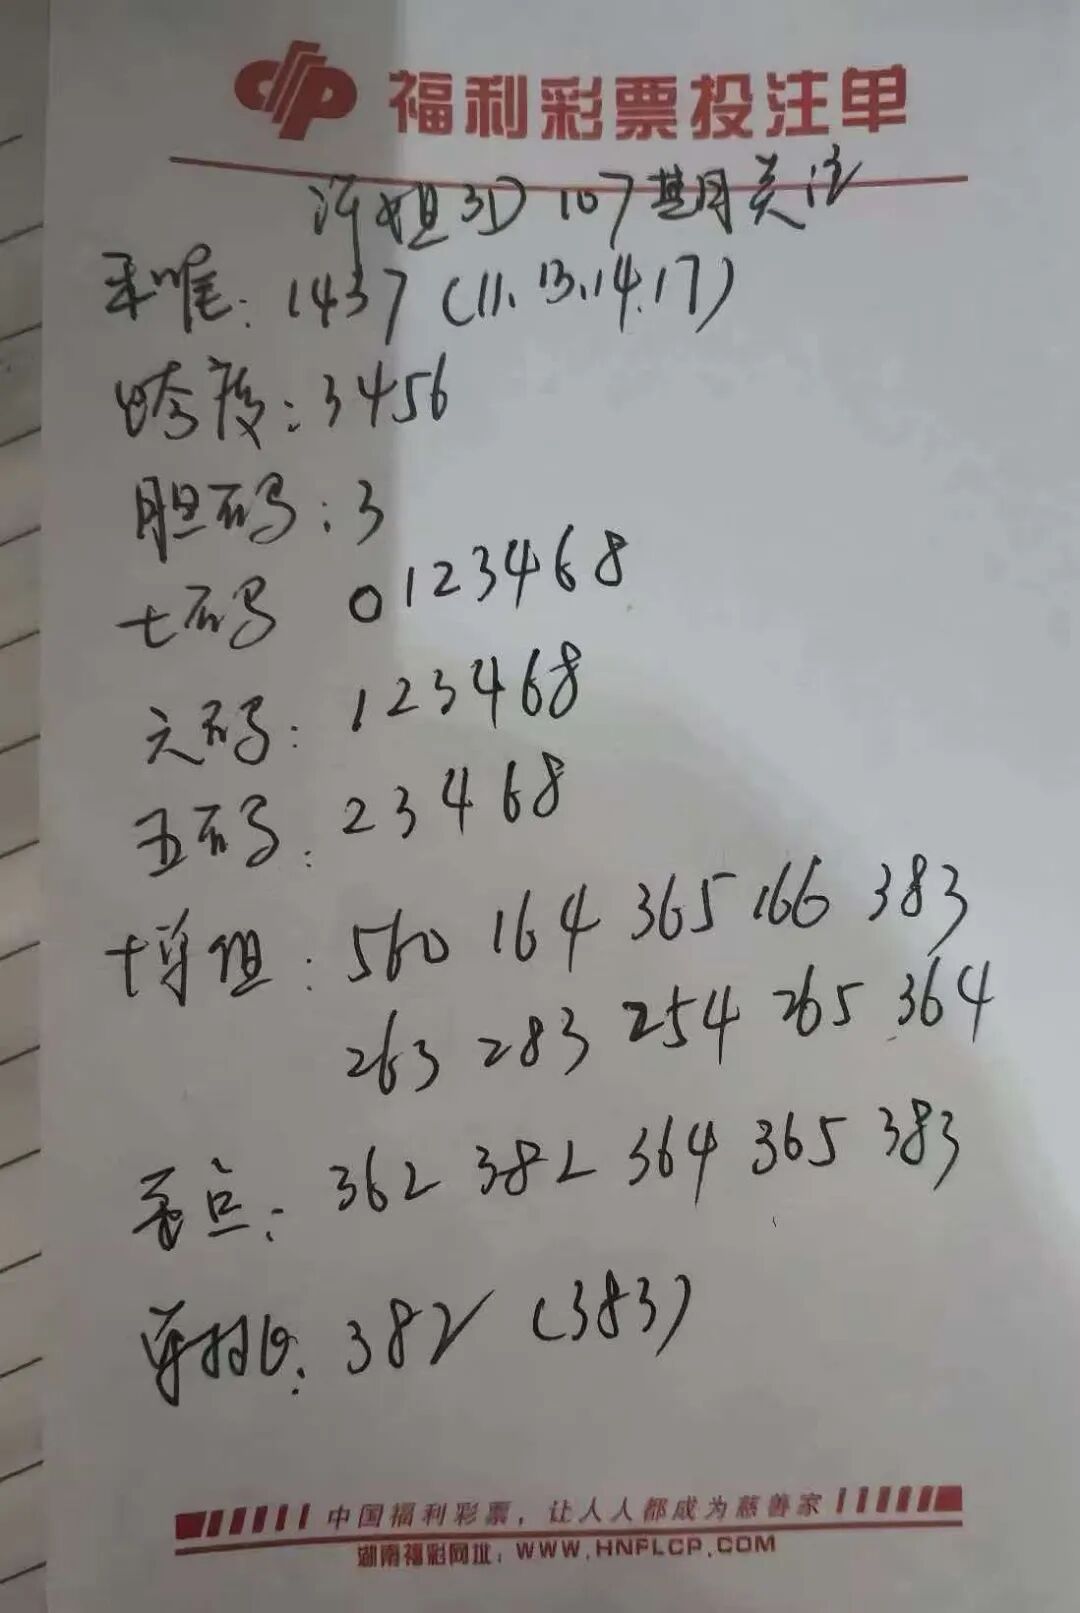 福利彩票投注单
许姐3D 107期关注
和唯: 1437 (11.13.14.17)
跨度: 3456
胆码: 3
七码 0123468
六码: 123468
五码: 23468
十单组: 560 164 365 166 383
263 283 254 265 364
重点: 362 382 364 365 383
单挑: 382 (383)
中国福利彩票，让人人都成为慈善家
湖南福彩网址：WWW.HNFLCP.COM